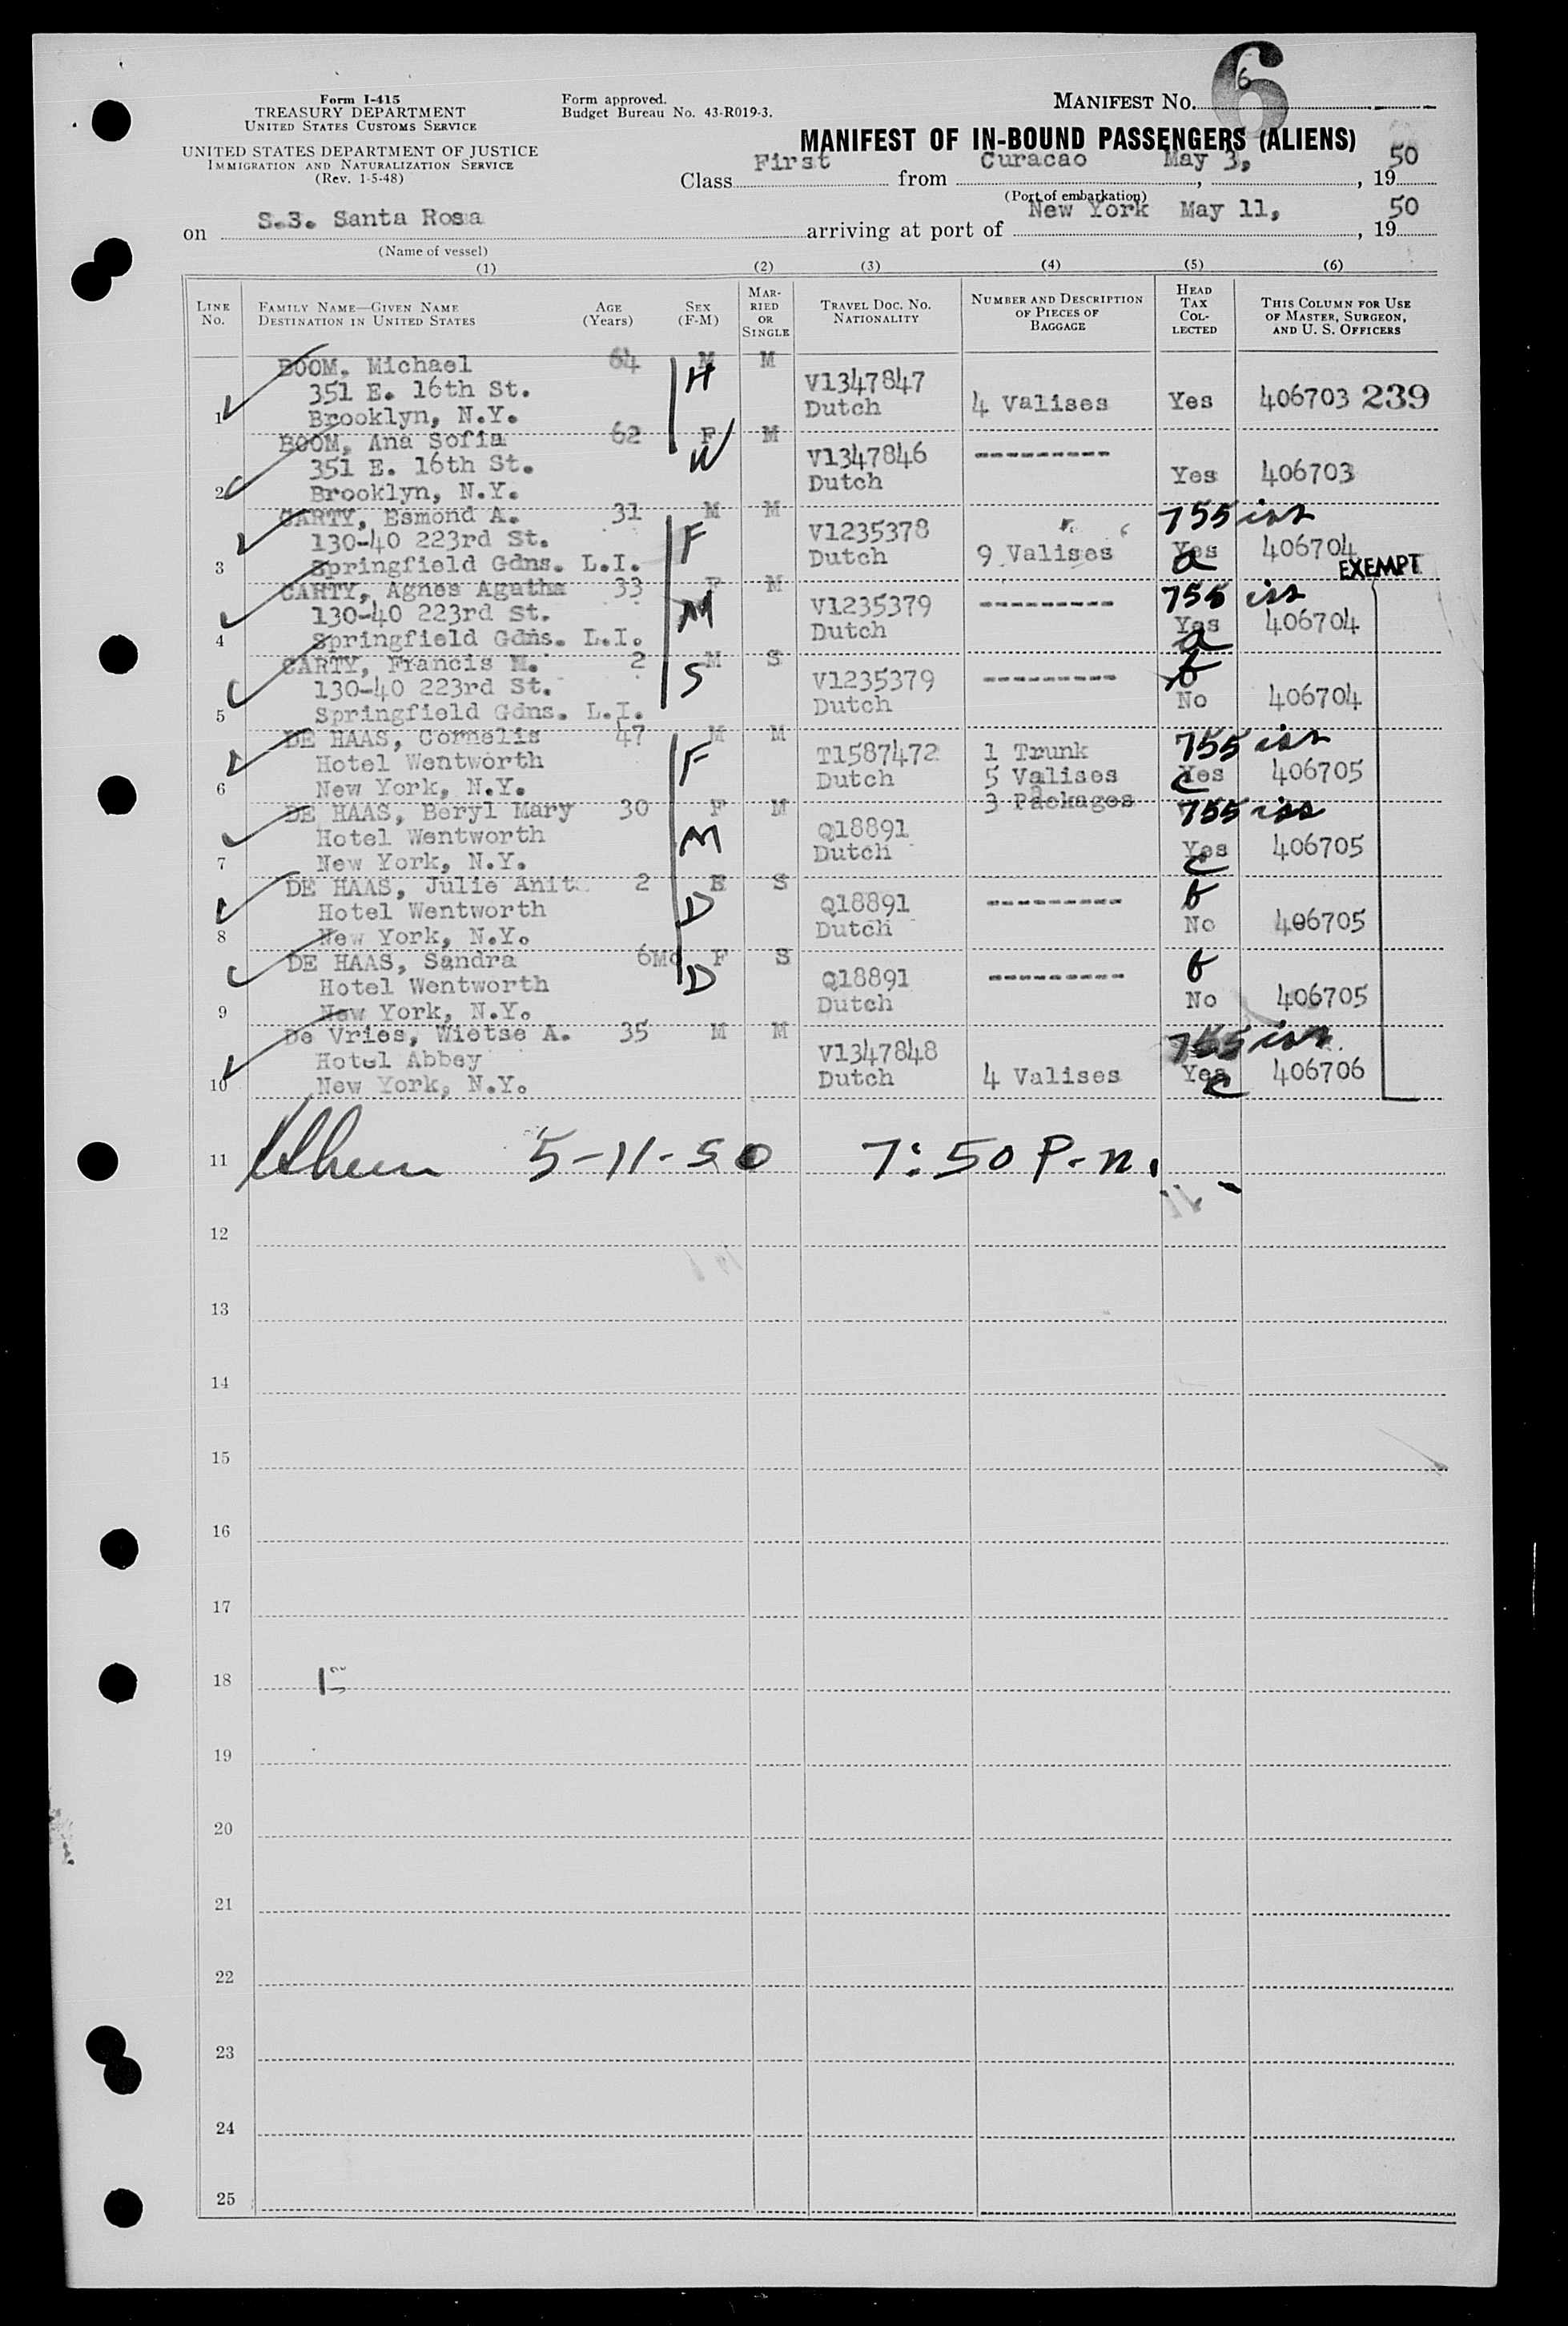 Form I-415
TREASURY DEPARTMENT
UNITED STATES CUSTOMS SERVICE
UNITED STATES DEPARTMENT OF JUSTICE
IMMIGRATION AND NATURALIZATION SERVICE
(Rev. 1-5-48)
Form approved.
Budget Bureau No. 43-R019-3.
MANIFEST No. 6
6
MANIFEST OF IN-BOUND PASSENGERS (ALIENS)
Class First from Curacao May 3, , 19 50
(Port of embarkation)
on S.S. Santa Rosa arriving at port of New York May 11, , 19 50
(Name of vessel)
(1) (2) (3) (4) (5) (6)
LINE No. FAMILY NAME—GIVEN NAME DESTINATION IN UNITED STATES AGE (Years) SEX (F-M) MARRIED OR SINGLE TRAVEL DOC. NO. NATIONALITY NUMBER AND DESCRIPTION OF PIECES OF BAGGAGE HEAD TAX COLLECTED THIS COLUMN FOR USE OF MASTER, SURGEON, AND U. S. OFFICERS
BOOM, Michael 64 M M
351 E. 16th St. H V1347847
1 Brooklyn, N.Y. Dutch 4 Valises Yes 406703 239
BOOM, Ana Sofia 62 F M
351 E. 16th St. W V1347846 ---------
2 Brooklyn, N.Y. Dutch Yes 406703
CARTY, Esmond A. 31 M M 755 iss
130-40 223rd St. F V1235378
3 Springfield Gdns. L.I. Dutch 9 Valises Yes a 406704
EXEMPT
CARTY, Agnes Agatha 33 F M 755 iss
130-40 223rd St. M V1235379 ---------
4 Springfield Gdns. L.I. Dutch Yes a 406704
CARTY, Francis M. 2 M S
130-40 223rd St. S V1235379 ---------
5 Springfield Gdns. L.I. Dutch No 406704
DE HAAS, Cornelis 47 M M 755 iss
Hotel Wentworth F T1587472 1 Trunk
6 New York, N.Y. Dutch 5 Valises Yes c 406705
3 Packages
DE HAAS, Beryl Mary 30 F M 755 iss
Hotel Wentworth M Q18891
7 New York, N.Y. Dutch Yes c 406705
DE HAAS, Julie Anita 2 F S
Hotel Wentworth D Q18891 ---------
8 New York, N.Y. Dutch No 406705
DE HAAS, Sandra 6Mo F S
Hotel Wentworth D Q18891 ---------
9 New York, N.Y. Dutch No 406705
De Vries, Wietse A. 35 M M 755 iss
Hotel Abbey V1347848
10 New York, N.Y. Dutch 4 Valises Yes c 406706
11 5-11-50 7:50 P.m.
12
13
14
15
16
17
18
19
20
21
22
23
24
25